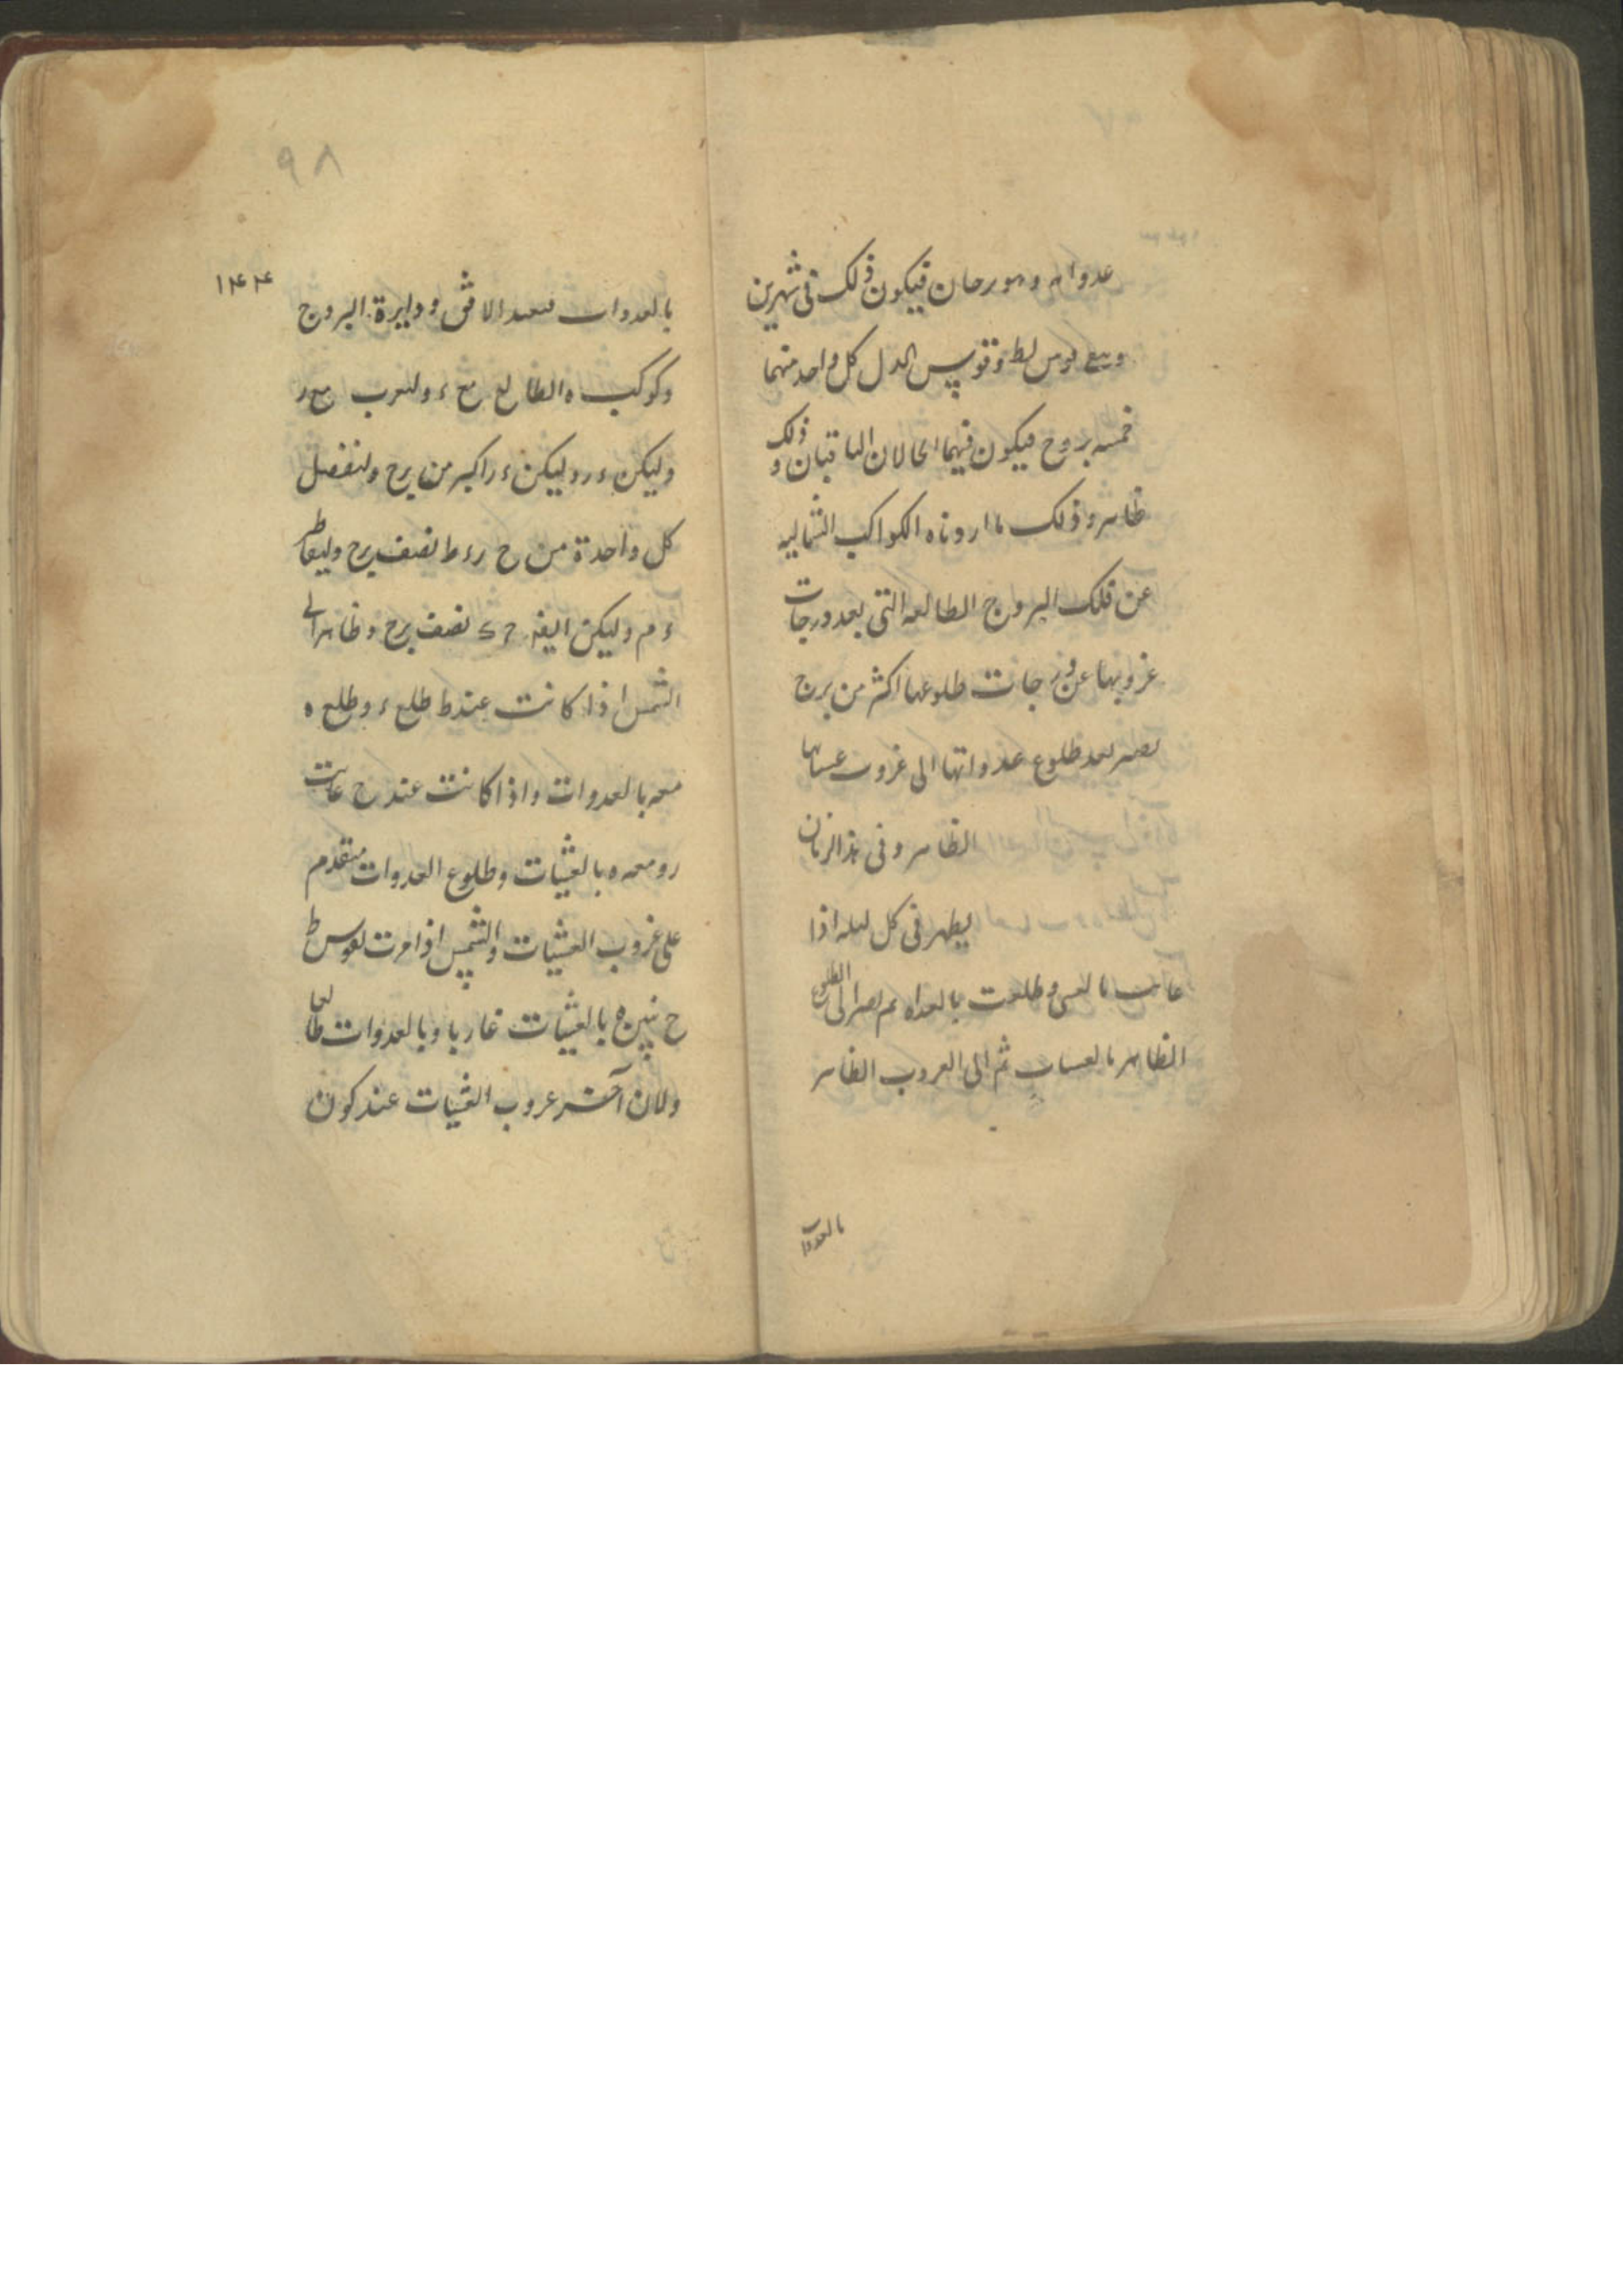 فيكون ذلك فى شهرين
وقوس كل واحد منهما
خمسه بروج فيكون فيهما الحالان الباقيان وذلك
ظاهر وذلك ما اردناه الكواكب الشماليه
عن فلك البروج الطالعه التى بعد درجات
غروبها عن درجات طلوعها اكثر من برج
بعد طلوع غدواتها الى غروب
الظاهر وفى هذا الزمان
يظهر فى كل ليله اذا
وطلعت بالغداه ثم الى الطلوع
الظاهر بالعشيات ثم الى الغروب الظاهر
بالغدوات
٩٨
١٤٤
بالغدوات فنعيد الافق ودايرة البروج
وكوكب ه الطالع مع ء وليغرب مع ر
وليكن ء ر وليكن ء ر اكبر من برج ولنفصل
كل واحدة من ح ر ء ط نصف برج وليقاطر
ء م وليكن ايضا نصف برج وظاهر ان
الشمس اذا كانت عند ط طلع ء وطلع ه
معه بالغدوات واذا كانت عند ح غابت
ر ومعه ه بالعشيات وطلوع الغدوات متقدم
على غروب العشيات والشمس اذا مرت بقوس ط
ح نير ه بالعشيات غاربا وبالغدوات طالعا
ولان آخر غروب العشيات عند كون